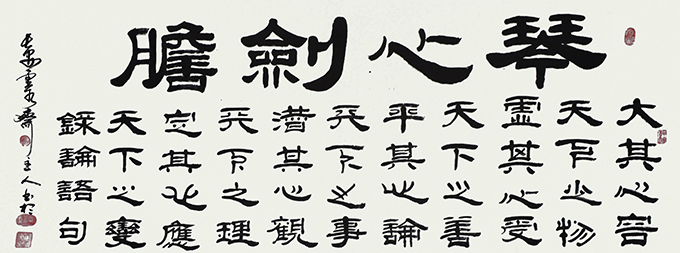 琴心劍膽
大其心容
天下之物
虛其心受
天下之善
平其心論
天下之事
潛其心觀
天下之理
定其心應
天下之變
錄論語句
齋主人書於